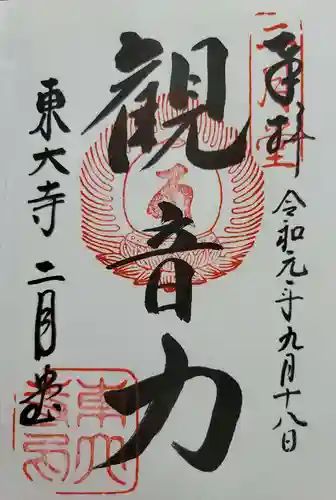 奉拝
二月堂
令和元年九月十八日
観音力
東大寺 二月堂